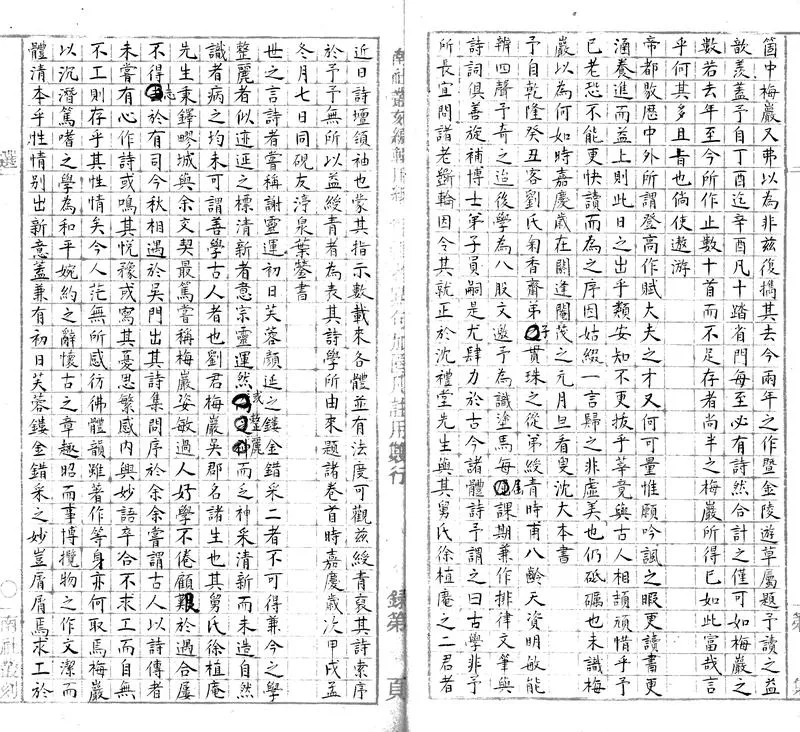 箇中梅巖又弗以為非茲復擕其去今兩年之作暨金陵遊草屬題予讀之益
歆羨蓋予自丁酉迄辛酉凡十踏省門每至必有詩然合計之僅可如梅巖之
數若去年至今所作止數十首而不足存者尚半之梅巖所得已如此富哉言
乎何其多且旨也倘使遨游
帝都敭歷中外所謂登高作賦大夫之才又何可量惟願吟諷之暇更讀書更
涵養進而益上則此日之出乎類安知不更拔乎莘竟與古人相頡頏惜乎予
已老恐不能更快讀而為之序因姑綴一言歸之非虛美也仍砥礪也未識梅
巖以為何如時嘉慶歲在閼逢閹茂之元月旦看叟沈大本書
予自乾隆癸丑客劉氏菊香齋弟子貫珠之從弟綬青時甫八齡天資明敏能
辨四聲予奇之迨後學為八股文邀予為識塗馬每屬課期兼作排律文筆與
詩詞俱善旋補博士弟子員嗣是尤肆力於古今諸體詩予謂之曰古學非予
所長宜問諸老斵輪因令其就正於沈禮堂先生與其舅氏徐植庵之二君者
近日詩壇領袖也蒙其指示數載來各體並有法度可觀茲綬青裒其詩索序
於予予無所以益綬青者為表其詩學所由來題諸卷首時嘉慶歲次甲戌孟
冬月七日同硯友渟泉葉蓥書
世之言詩者嘗稱謝靈運初日芙蓉顏延之鏤金錯采二者不可得兼今之學
整麗者似迹延之標清新者意宗靈運然或整麗而乏神采清新而未造自然
識者病之均未可謂善學古人者也劉君梅巖吳郡名諸生也其舅氏徐植庵
先生束鐸畷城與余文契最篤嘗稱梅巖姿敏過人好學不倦顧艱於遇合屢
不得志於有司今秋相遇於吳門出其詩集問序於余余嘗謂古人以詩傳者
未嘗有心作詩或鳴其悅豫或寫其憂思繁感內興妙語卒合不求工而自無
不工則存乎其性情矣今人茫無所感彷彿體韻雖著作等身亦何取焉梅巖
以沉潛篤嗜之學為和平婉約之辭懷古之章趣昭而事博攬物之作文潔而
體清本乎性情別出新意蓋兼有初日芙蓉鏤金錯采之妙豈屑屑焉求工於
南社叢刻
選
錄第
頁